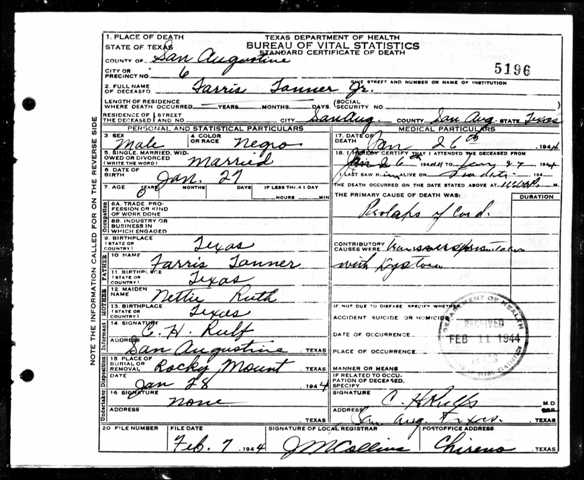 1. PLACE OF DEATH
STATE OF TEXAS
TEXAS DEPARTMENT OF HEALTH
BUREAU OF VITAL STATISTICS
STANDARD CERTIFICATE OF DEATH
COUNTY OF San Augustine
CITY OR PRECINCT NO. 6
5196
2. FULL NAME OF DECEASED Farris Tanner Jr.
GIVE STREET AND NUMBER OR NAME OF INSTITUTION
LENGTH OF RESIDENCE WHERE DEATH OCCURRED YEARS MONTHS DAYS (SOCIAL SECURITY NO.
RESIDENCE OF THE DECEASED STREET AND NO. CITY San Aug. COUNTY San Aug. STATE Texas
PERSONAL AND STATISTICAL PARTICULARS
3. SEX Male
4. COLOR OR RACE Negro
5. SINGLE, MARRIED, WIDOWED OR DIVORCED (WRITE THE WORD) Married
6. DATE OF BIRTH Jan. 27
7. AGE 0 YEARS MONTHS DAYS IF LESS THAN 1 DAY HOURS MIN
8A. TRADE, PROFESSION OR KIND OF WORK DONE
8B. INDUSTRY OR BUSINESS IN WHICH ENGAGED
9. BIRTHPLACE (STATE OR COUNTRY) Texas
10 NAME Farris Tanner
11. BIRTHPLACE (STATE OR COUNTRY) Texas
12. MAIDEN NAME Nettie Ruth
13. BIRTHPLACE (STATE OR COUNTRY) Texas
14. SIGNATURE C. H.
ADDRESS San Augustine TEXAS
15. PLACE OF BURIAL OR REMOVAL Rocky Mount TEXAS
DATE Jan 28 1944
16 SIGNATURE none
ADDRESS TEXAS
MEDICAL PARTICULARS
17. DATE OF DEATH Jan 26th 1944
18.
THE DEATH OCCURRED ON THE DATE STATED ABOVE AT
THE PRIMARY CAUSE OF DEATH WAS: DURATION
Prolaps of Cord.
CONTRIBUTORY CAUSES WERE
with
IF NOT DUE TO DISEASE, SPECIFY WHETHER:
ACCIDENT, SUICIDE OR HOMICIDE
DATE OF OCCURRENCE
PLACE OF OCCURRENCE
MANNER OR MEANS
IF RELATED TO OCCUPATION OF DECEASED, SPECIFY
SIGNATURE C. H. M.D.
ADDRESS San Aug. Texas. TEXAS
DEPARTMENT OF HEALTH
RECEIVED
FEB 11 1944
20 FILE NUMBER
FILE DATE Feb. 7 1944
SIGNATURE OF LOCAL REGISTRAR J M Collins
POSTOFFICE ADDRESS Chireno TEXAS
NOTE THE INFORMATION CALLED FOR ON THE REVERSE SIDE
Occupation
FATHER
MOTHER
Informant
Undertaker Disposition